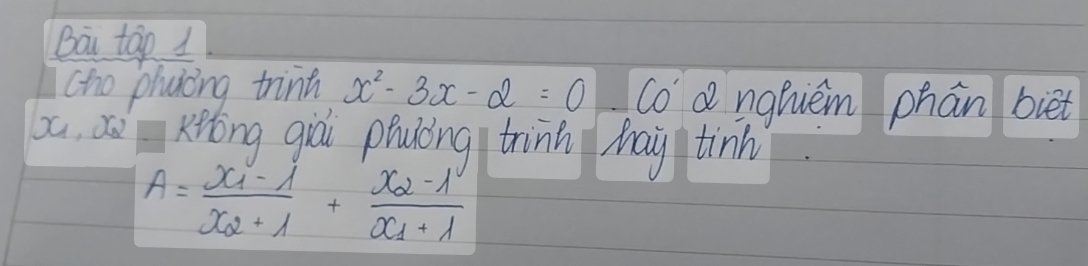 Bài tập 1.
Cho phương trình x² - 3x - 2 = 0. Có 2 nghiệm phân biệt
x₁, x₂. Không giải phương trình hãy tính.
A = (x₁ - 1)/(x₂ + 1) + (x₂ - 1)/(x₁ + 1)